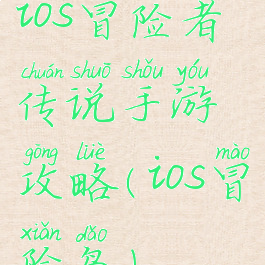 ios冒险者
chuán shuō shǒu yóu
传说手游
gōng lüè mào
攻略(ios冒
xiǎn dǎo
险岛)